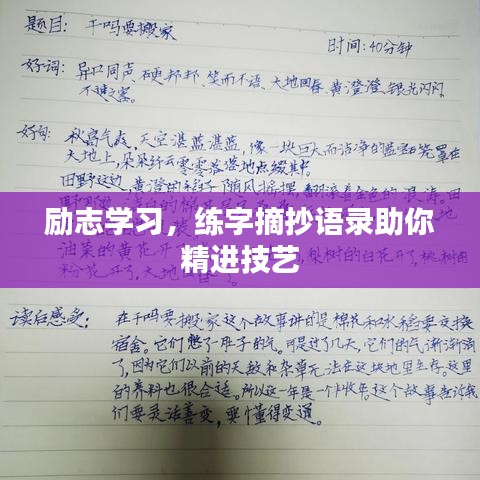 题目: 干吗要搬家
时间:40分钟
好词: 异口同声、硬邦邦、笑而不语、大地回春、黄澄澄、银光闪闪、
不速之客。
好句: 秋高气爽,天空湛蓝湛蓝,像一块巨大而洁净的蓝宝石笼罩在
大地上,朵朵纤云零零落落地点缀其中。
田野这边,黄澄的稻子随风摇摆,翻滚着金色的浪涛。田
励志学习,练字摘抄语录助你
精进技艺
油菜的黄花开了 梨树的白花开了
桃花开了,大地回
读后感受: 在干吗要搬家这个故事讲的是棉花和水稻要交换
宿舍。它们憋了一肚子的气。可是过了几天,它们的气渐渐消
了,因为它们以前的天敌和杂草无法在这块地里生存。这里
的养料也很合适。所以这一年是一个丰收年。这个故事告诉我
们要灵活善变,要懂得变通。